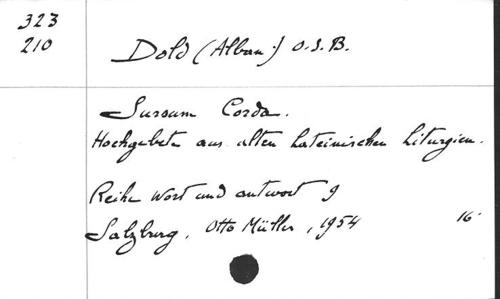 323
210
Dold (Alban.) O.S.B.
Sursum Corda.
Hochgebete aus alten Lateinischen Liturgien.
Reihe Wort und antwort 9
Salzburg, Otto Müller, 1954 16°